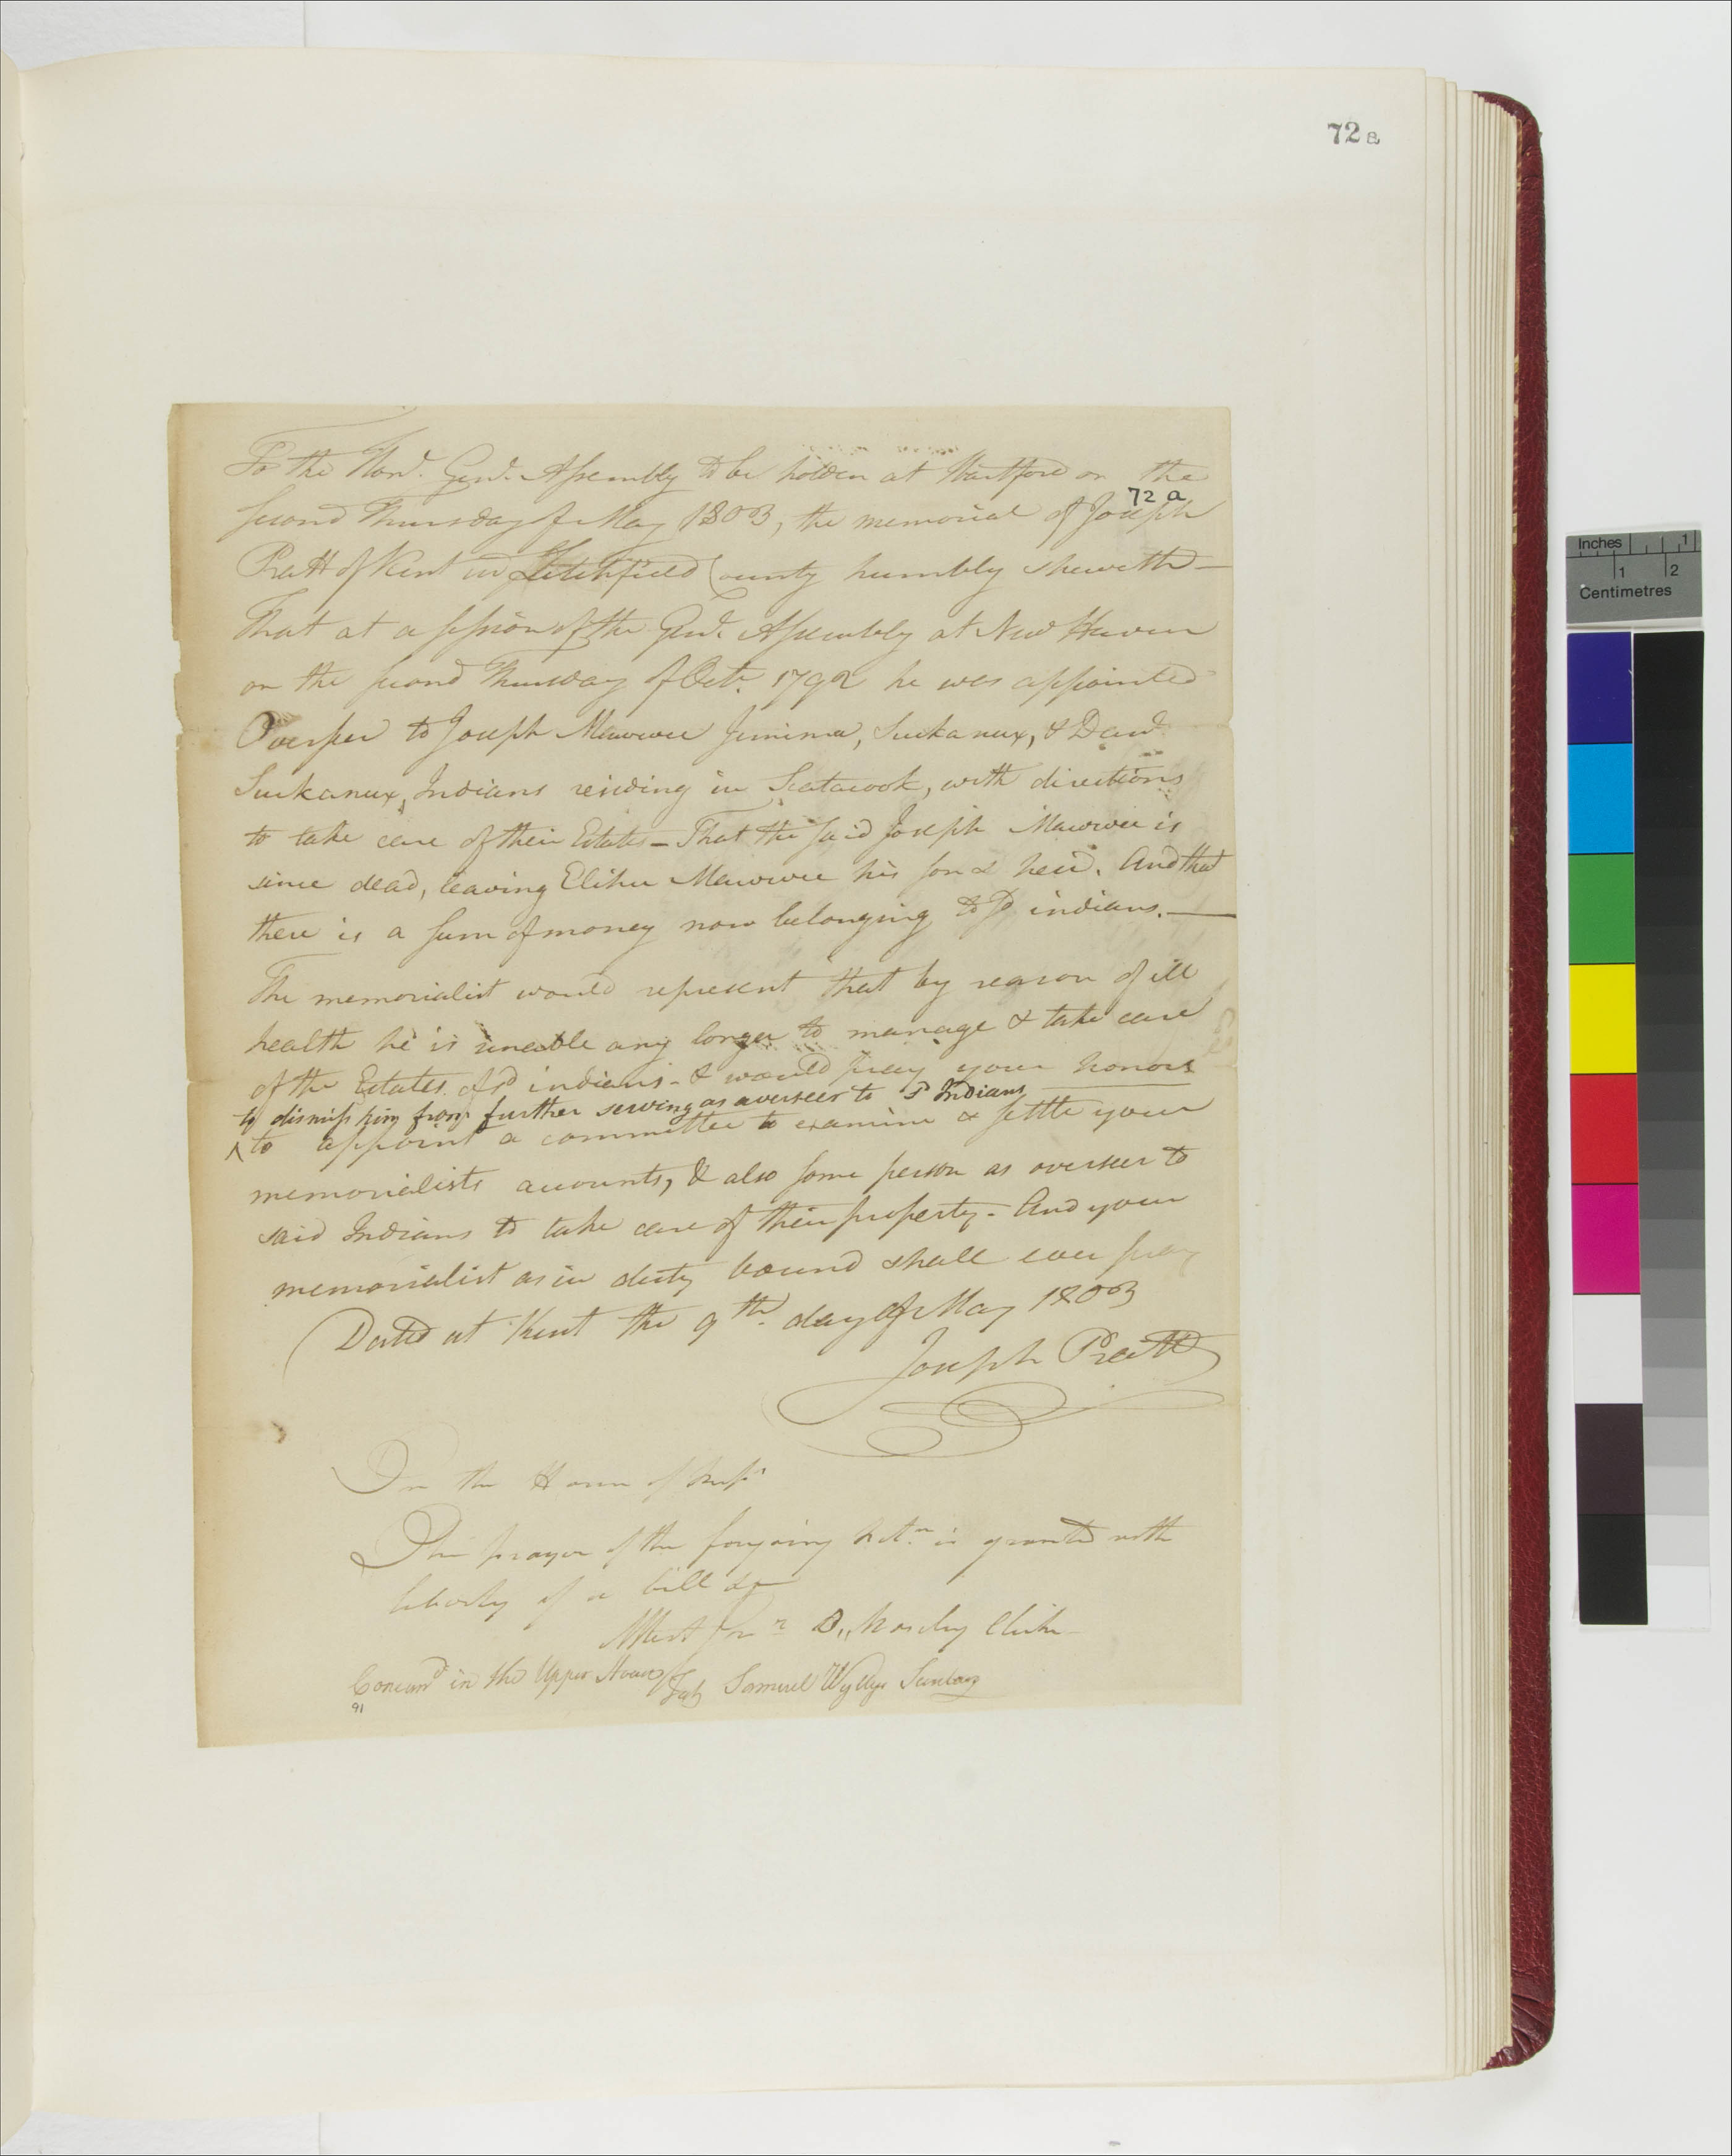 72a
To the Hond. Genl. Assembly to be holden at Hartford on the
72 a
second Thursday of May 1803, the memorial of Joseph
Pratt of Kent in Litchfield County humbly sheweth —
That at a session of the Genl. Assembly at New Haven
on the second Thursday of Octr. 1792 he was appointed
Overseer to Joseph Mauwee Jemima, Suckanux, & Davd.
Suckanux, Indians residing in Scatacook, with directions
to take care of their Estates — That the said Joseph Mauwee is
since dead, leaving Elihu Mauwee his son & heir. And that
there is a sum of money now belonging to sd indians. —
The memorialist would represent that by reason of ill
health he is unable any longer to manage & take care
of the Estates of sd indians - & would pray your honors
to dismiss him from further serving as overseer to sd Indians
^ to appoint a committee to examine & settle your
memorialists accounts, & also some person as overseer to
said Indians to take care of their property - And your
memorialist as in duty bound shall ever pray
Dated at Kent the 9th. day of May 1803
Joseph Pratt
In the House of Reps.
The prayer of the foregoing Petn. is granted with
liberty of a bill &c
Attest D. Mosely Clerk
Concurrd in the Upper House
Test Samuel Wyllys Secretary
91
Inches 1
1 2
Centimetres